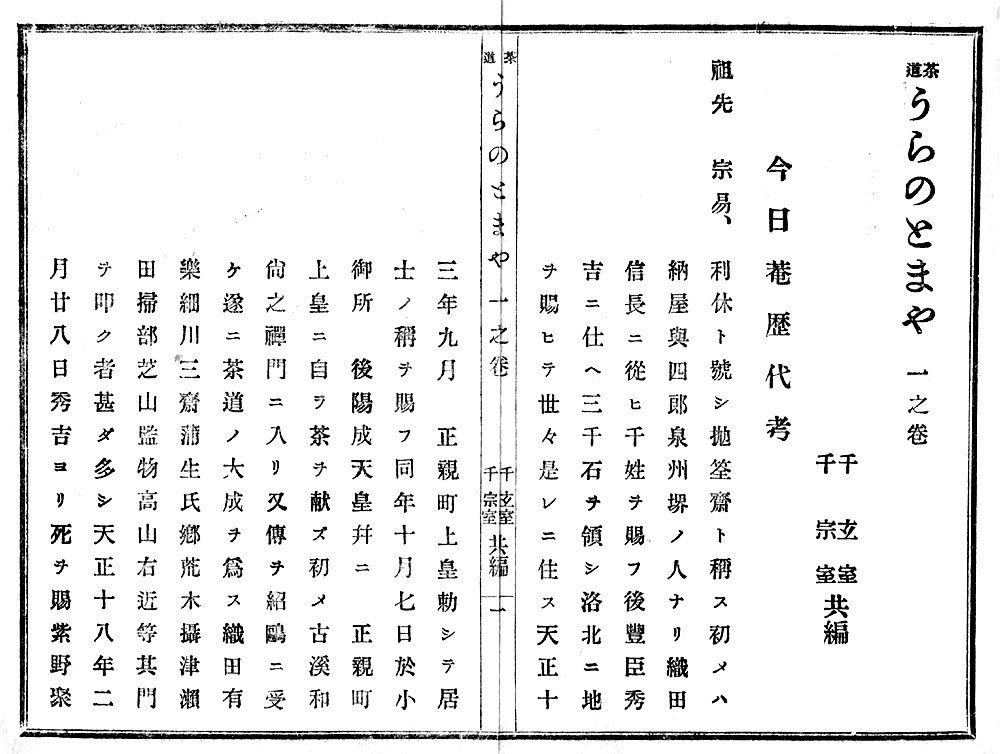 茶道うらのとまや 一之卷
千玄室
千宗室 共編
今日菴歴代考
祖先 宗易、利休ト號シ抛筌齋ト稱ス初メハ
納屋與四郎泉州堺ノ人ナリ織田
信長ニ從ヒ千姓ヲ賜フ後豐臣秀
吉ニ仕ヘ三千石ヲ領シ洛北ニ地
ヲ賜ヒテ世々是レニ住ス天正十
茶道 うらのとまや 一之卷 千玄室 千宗室 共編 一
三年九月 正親町上皇勅シテ居
士ノ稱ヲ賜フ同年十月七日於小
御所 後陽成天皇幷ニ 正親町
上皇ニ自ヲ茶ヲ献ズ初メ古溪和
尙之禪門ニ入リ又傳ヲ紹鷗ニ受
ケ遂ニ茶道ノ大成ヲ爲ス織田有
樂細川三齋蒲生氏鄕荒木攝津瀨
田掃部芝山監物高山右近等其門
ヲ叩ク者甚ダ多シ天正十八年二
月廿八日秀吉ヨリ死ヲ賜紫野聚